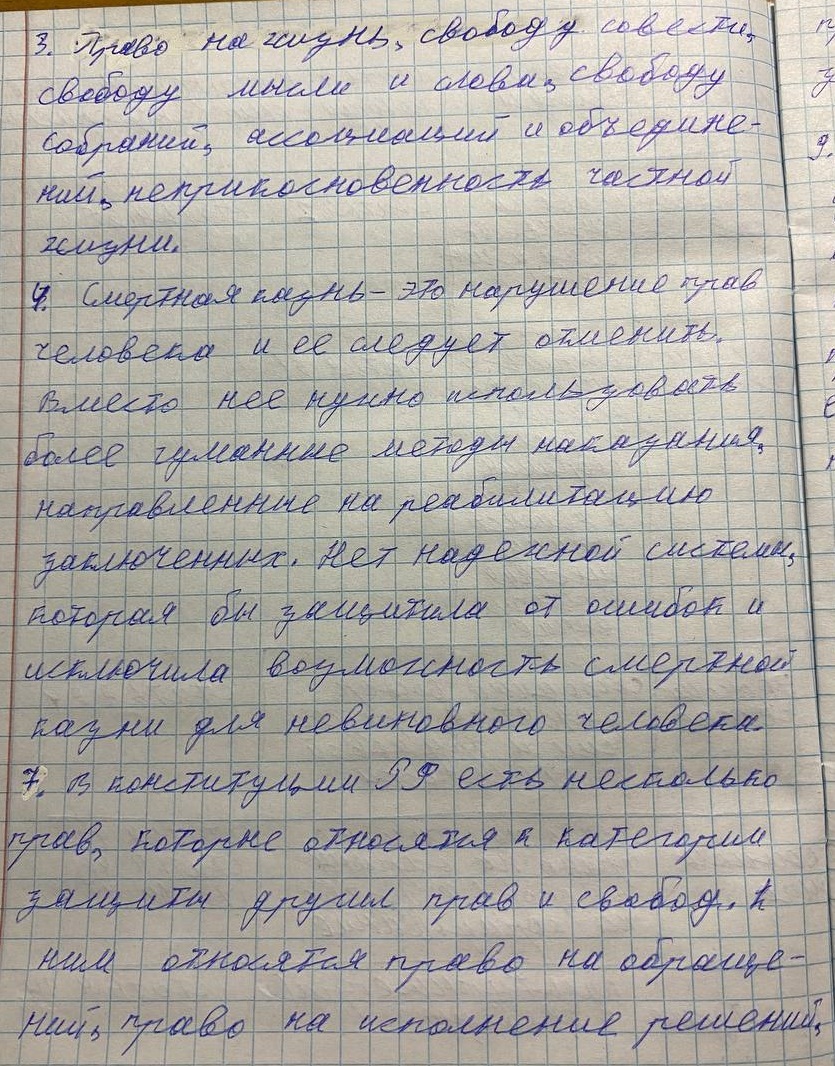 3. Право на жизнь, свободу совести,
свободу мысли и слова, свободу
собраний, ассоциаций и объедине-
ний, неприкосновенность частной
жизни.
4. Смертная казнь – это нарушение прав
человека и ее следует отменить.
Вместо нее нужно использовать
более гуманные методы наказания,
направленные на реабилитацию
заключенных. Нет надежной системы,
которая бы защитила от ошибок и
исключила возможность смертной
казни для невиновного человека.
7. В конституции РФ есть несколько
прав, которые относятся к категории
защиты других прав и свобод. К
ним относятся право на обраще-
ний, право на исполнение решений,
9.